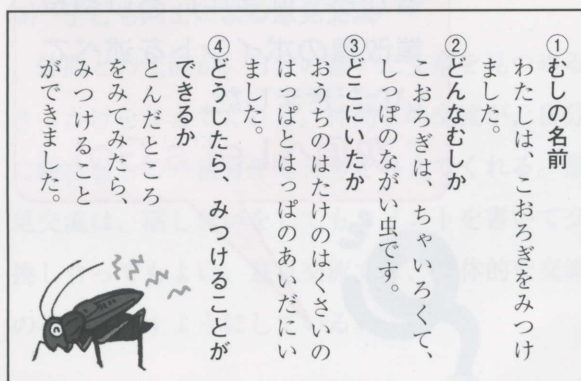 ①むしの名前
わたしは、こおろぎをみつけ
ました。
②どんなむしか
こおろぎは、ちゃいろくて、
しっぽのながい虫です。
③どこにいたか
おうちのはたけのはくさいの
はっぱとはっぱのあいだにい
ました。
④どうしたら、みつけることが
できるか
とんだところ
をみてみたら、
みつけること
ができました。